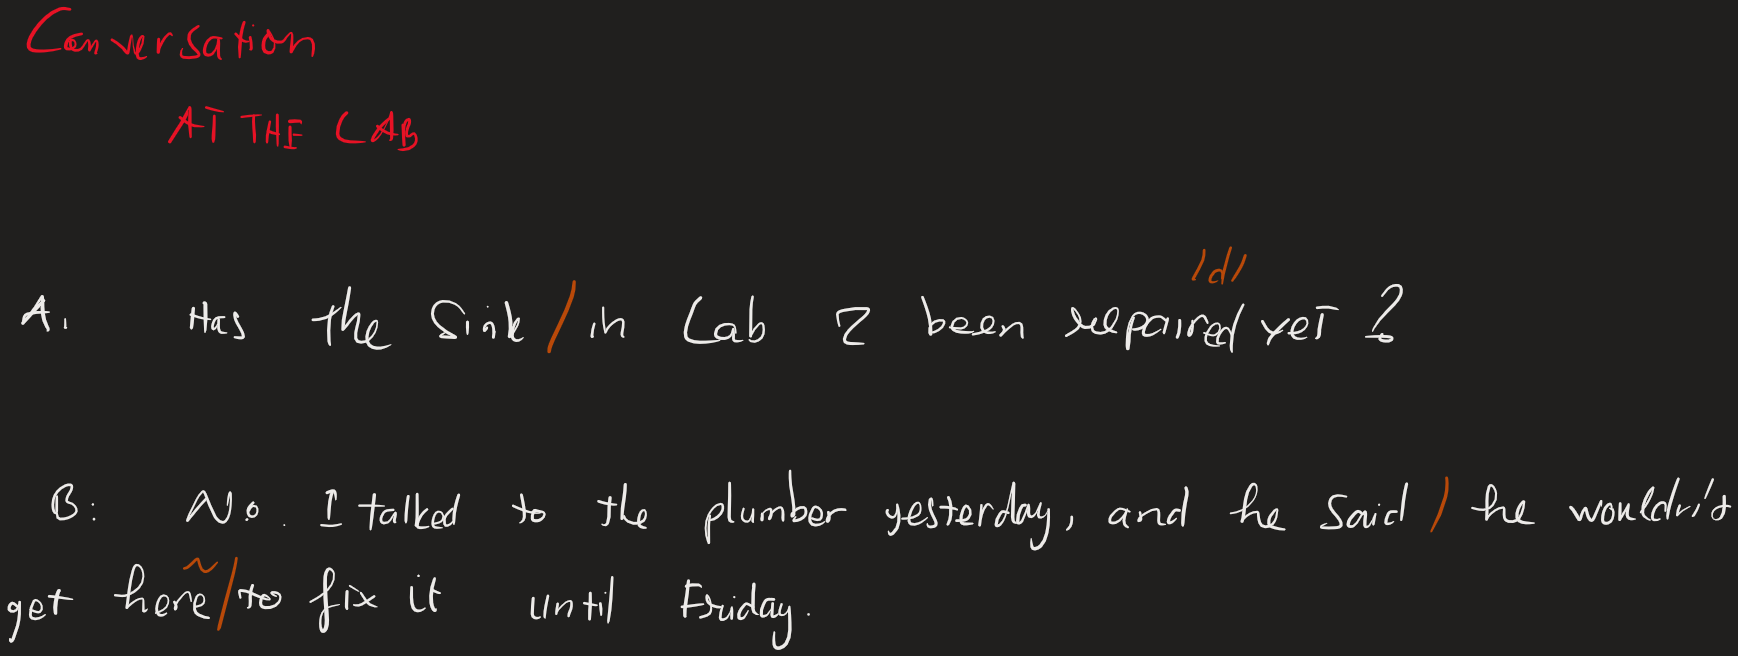 Conversation
AT THE LAB
/d/
A. Has the Sink / in Lab 2 been repaired yet ?
B: No. I talked to the plumber yesterday, and he said / he wouldn't
get here ~ / to fix it until Friday.